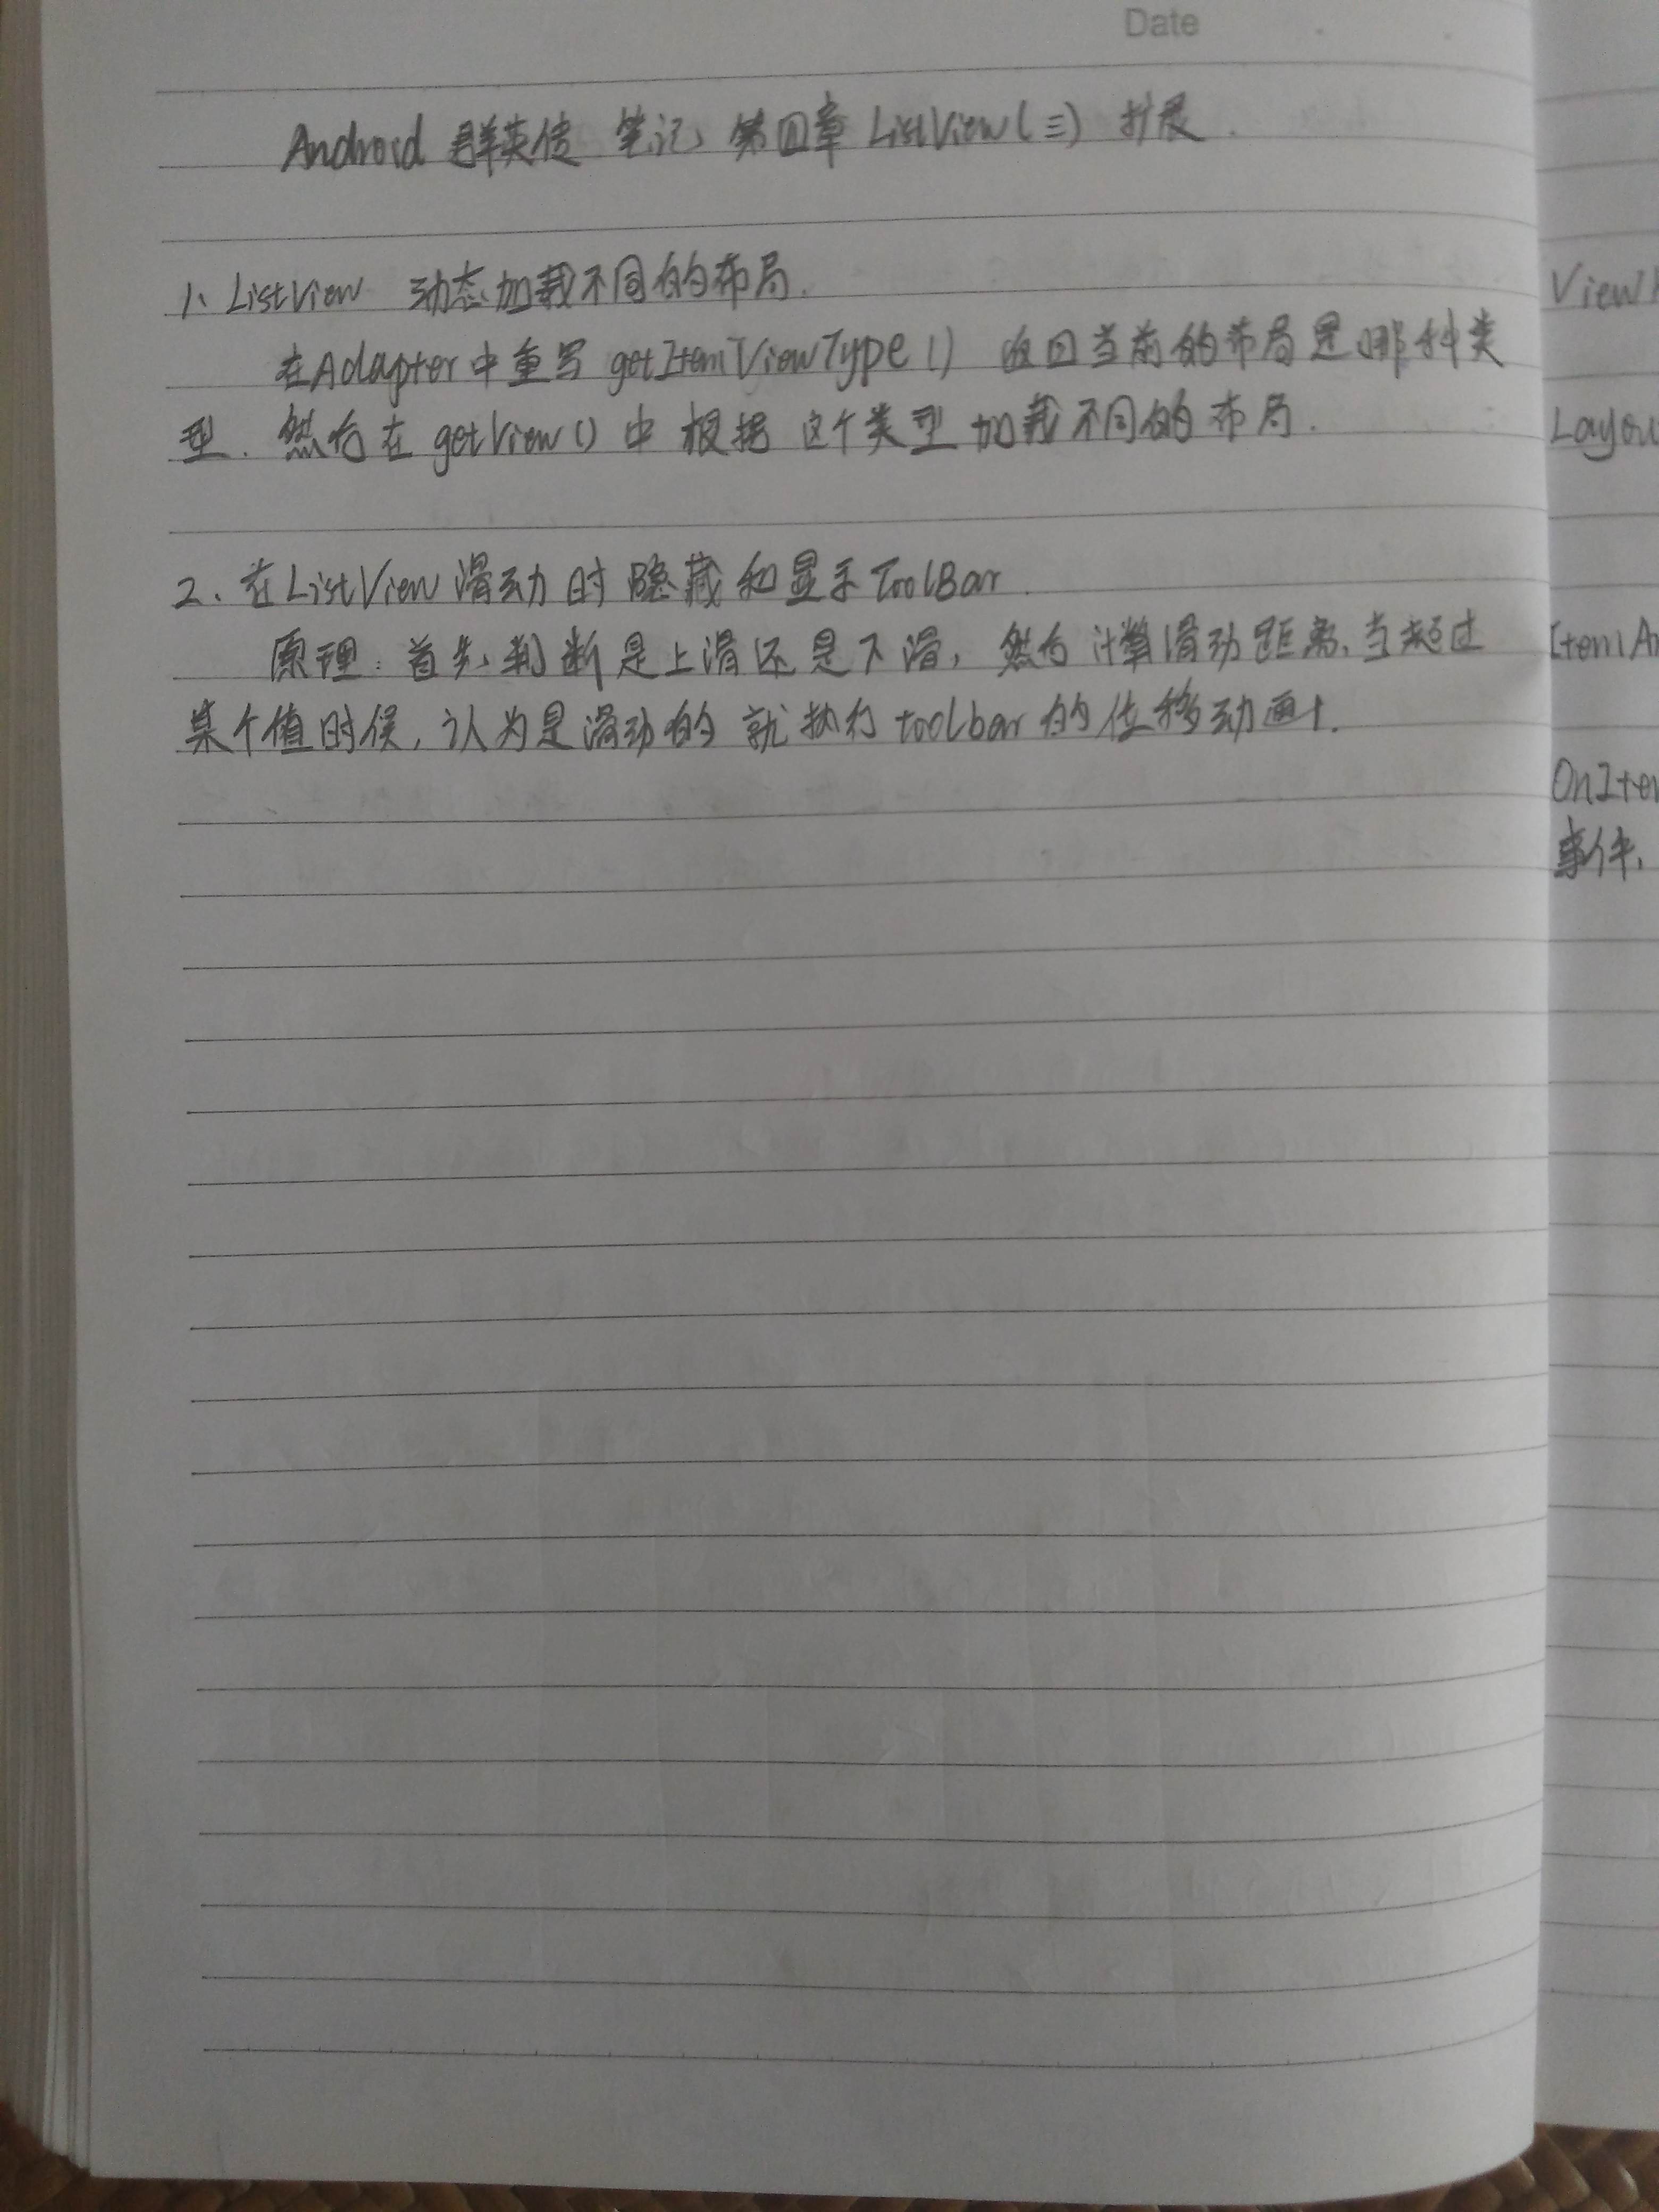 Date
Android 群英传 笔记 第四章 ListView(三) 扩展.
1、ListView 动态加载不同的布局.
在Adapter中重写 getItemViewType() 返回当前的布局是哪种类
型. 然后在 getView() 中 根据 这个类型 加载不同的布局.
2、在ListView 滑动时 隐藏和显示ToolBar.
原理: 首先判断是上滑还是下滑, 然后计算滑动距离,当超过
某个值时候, 认为是滑动的 就执行 toolbar 的位移动画.
View
Layou
ItemA
OnIte
事件,